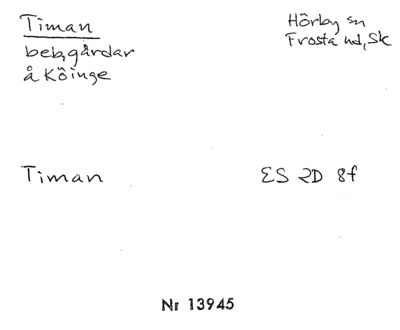 Timan
Hörby sn
beb, gårdar
Frosta hd, Sk
å Köinge
Timan
ES 2D 8f
Nr 13945